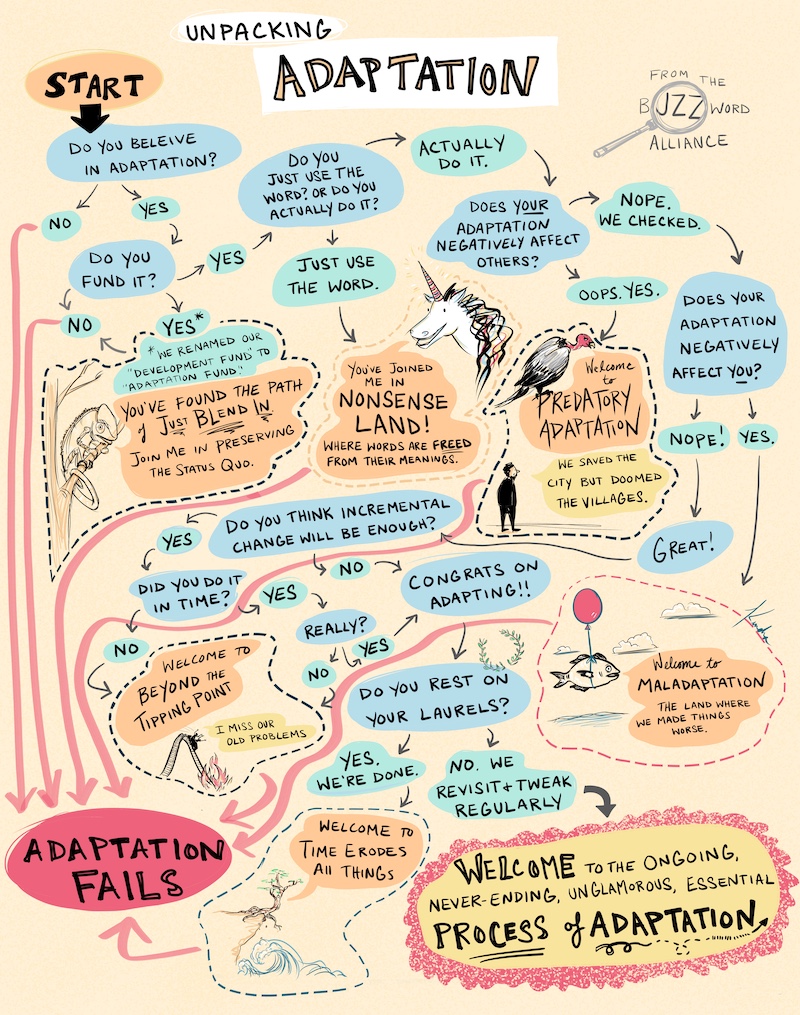 UNPACKING
ADAPTATION
START
FROM THE
BUZZWORD
ALLIANCE
DO YOU BELEIVE
IN ADAPTATION?
NO
YES
DO YOU
FUND IT?
YES
NO
YES*
* WE RENAMED OUR
"DEVELOPMENT FUND" TO
"ADAPTATION FUND."
YOU'VE FOUND THE PATH
of JUST BLEND IN.
JOIN ME IN PRESERVING
THE STATUS QUO.
DO YOU
JUST USE THE
WORD? OR DO YOU
ACTUALLY DO IT?
ACTUALLY
DO IT.
JUST USE
THE WORD.
YOU'VE JOINED
ME IN
NONSENSE
LAND!
WHERE WORDS ARE FREED
FROM THEIR MEANINGS.
DOES YOUR
ADAPTATION
NEGATIVELY AFFECT
OTHERS?
NOPE.
WE CHECKED.
OOPS. YES.
Welcome
to
PREDATORY
ADAPTATION
WE SAVED THE
CITY BUT DOOMED
THE VILLAGES.
DOES YOUR
ADAPTATION
NEGATIVELY
AFFECT YOU?
NOPE!
YES.
GREAT!
Welcome to
MALADAPTATION
THE LAND WHERE
WE MADE THINGS
WORSE.
DO YOU THINK INCREMENTAL
CHANGE WILL BE ENOUGH?
YES
NO
DID YOU DO IT
IN TIME?
YES
NO
REALLY?
YES
NO
WELCOME TO
BEYOND THE
TIPPING POINT
I MISS OUR
OLD PROBLEMS
CONGRATS ON
ADAPTING!!
DO YOU REST ON
YOUR LAURELS?
YES.
WE'RE DONE.
NO. WE
REVISIT + TWEAK
REGULARLY
WELCOME TO
TIME ERODES
ALL THINGS
ADAPTATION
FAILS
WELCOME TO THE ONGOING,
NEVER-ENDING, UNGLAMOROUS, ESSENTIAL
PROCESS of ADAPTATION